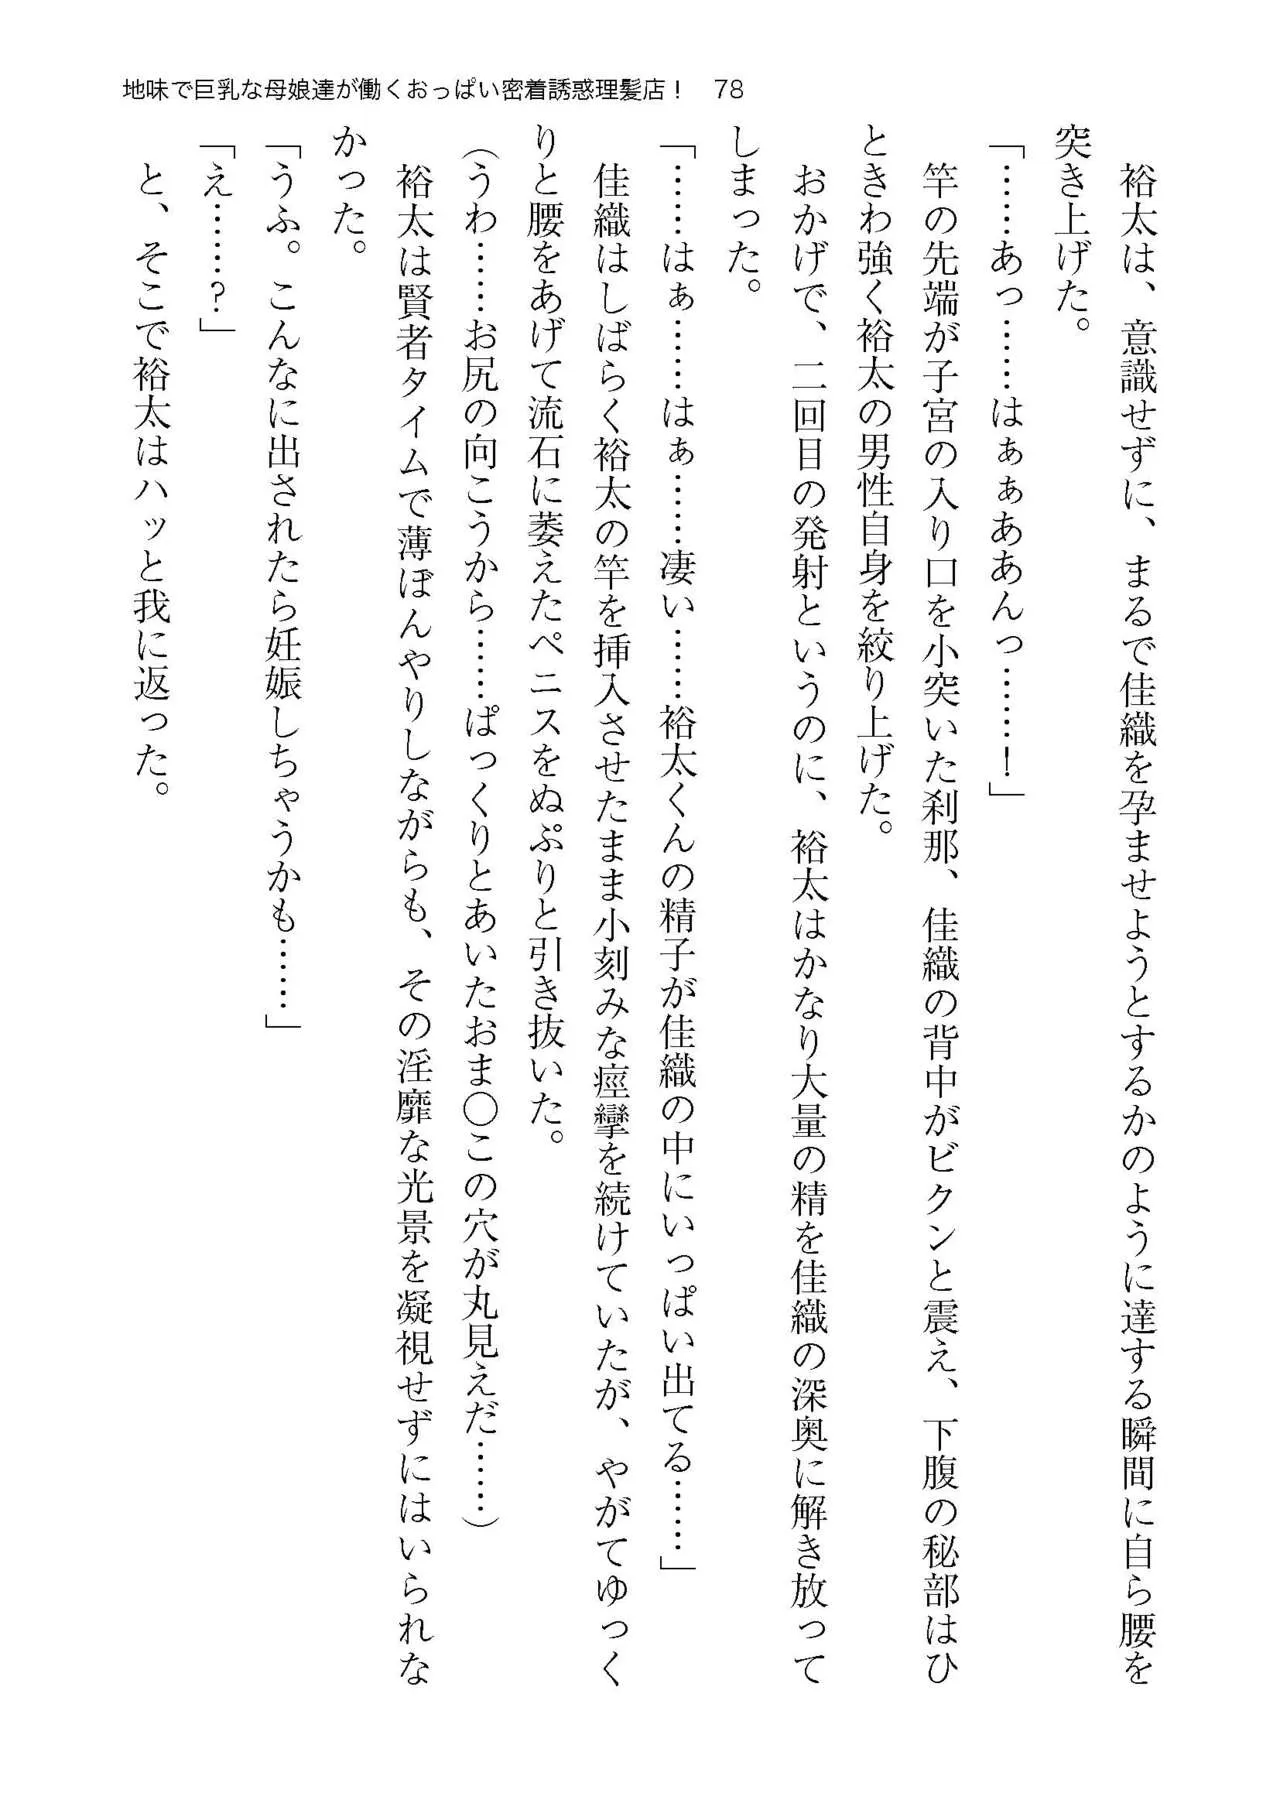 地味で巨乳な母娘達が働くおっぱい密着誘惑理髪店！　78
　裕太は、意識せずに、まるで佳織を孕ませようとするかのように達する瞬間に自ら腰を
突き上げた。
「……あっ……はぁぁああんっ………！」
　竿の先端が子宮の入り口を小突いた刹那、佳織の背中がビクンと震え、下腹の秘部はひ
ときわ強く裕太の男性自身を絞り上げた。
　おかげで、二回目の発射というのに、裕太はかなり大量の精を佳織の深奥に解き放って
しまった。
「……はぁ……はぁ……凄い……裕太くんの精子が佳織の中にいっぱい出てる……」
　佳織はしばらく裕太の竿を挿入させたまま小刻みな痙攣を続けていたが、やがてゆっく
りと腰をあげて流石に萎えたペニスをぬぷりと引き抜いた。
（うわ……お尻の向こうから……ぱっくりとあいたおま〇この穴が丸見えだ……）
　裕太は賢者タイムで薄ぼんやりしながらも、その淫靡な光景を凝視せずにはいられな
かった。
「うふ。こんなに出されたら妊娠しちゃうかも……」
「え………？」
　と、そこで裕太はハッと我に返った。